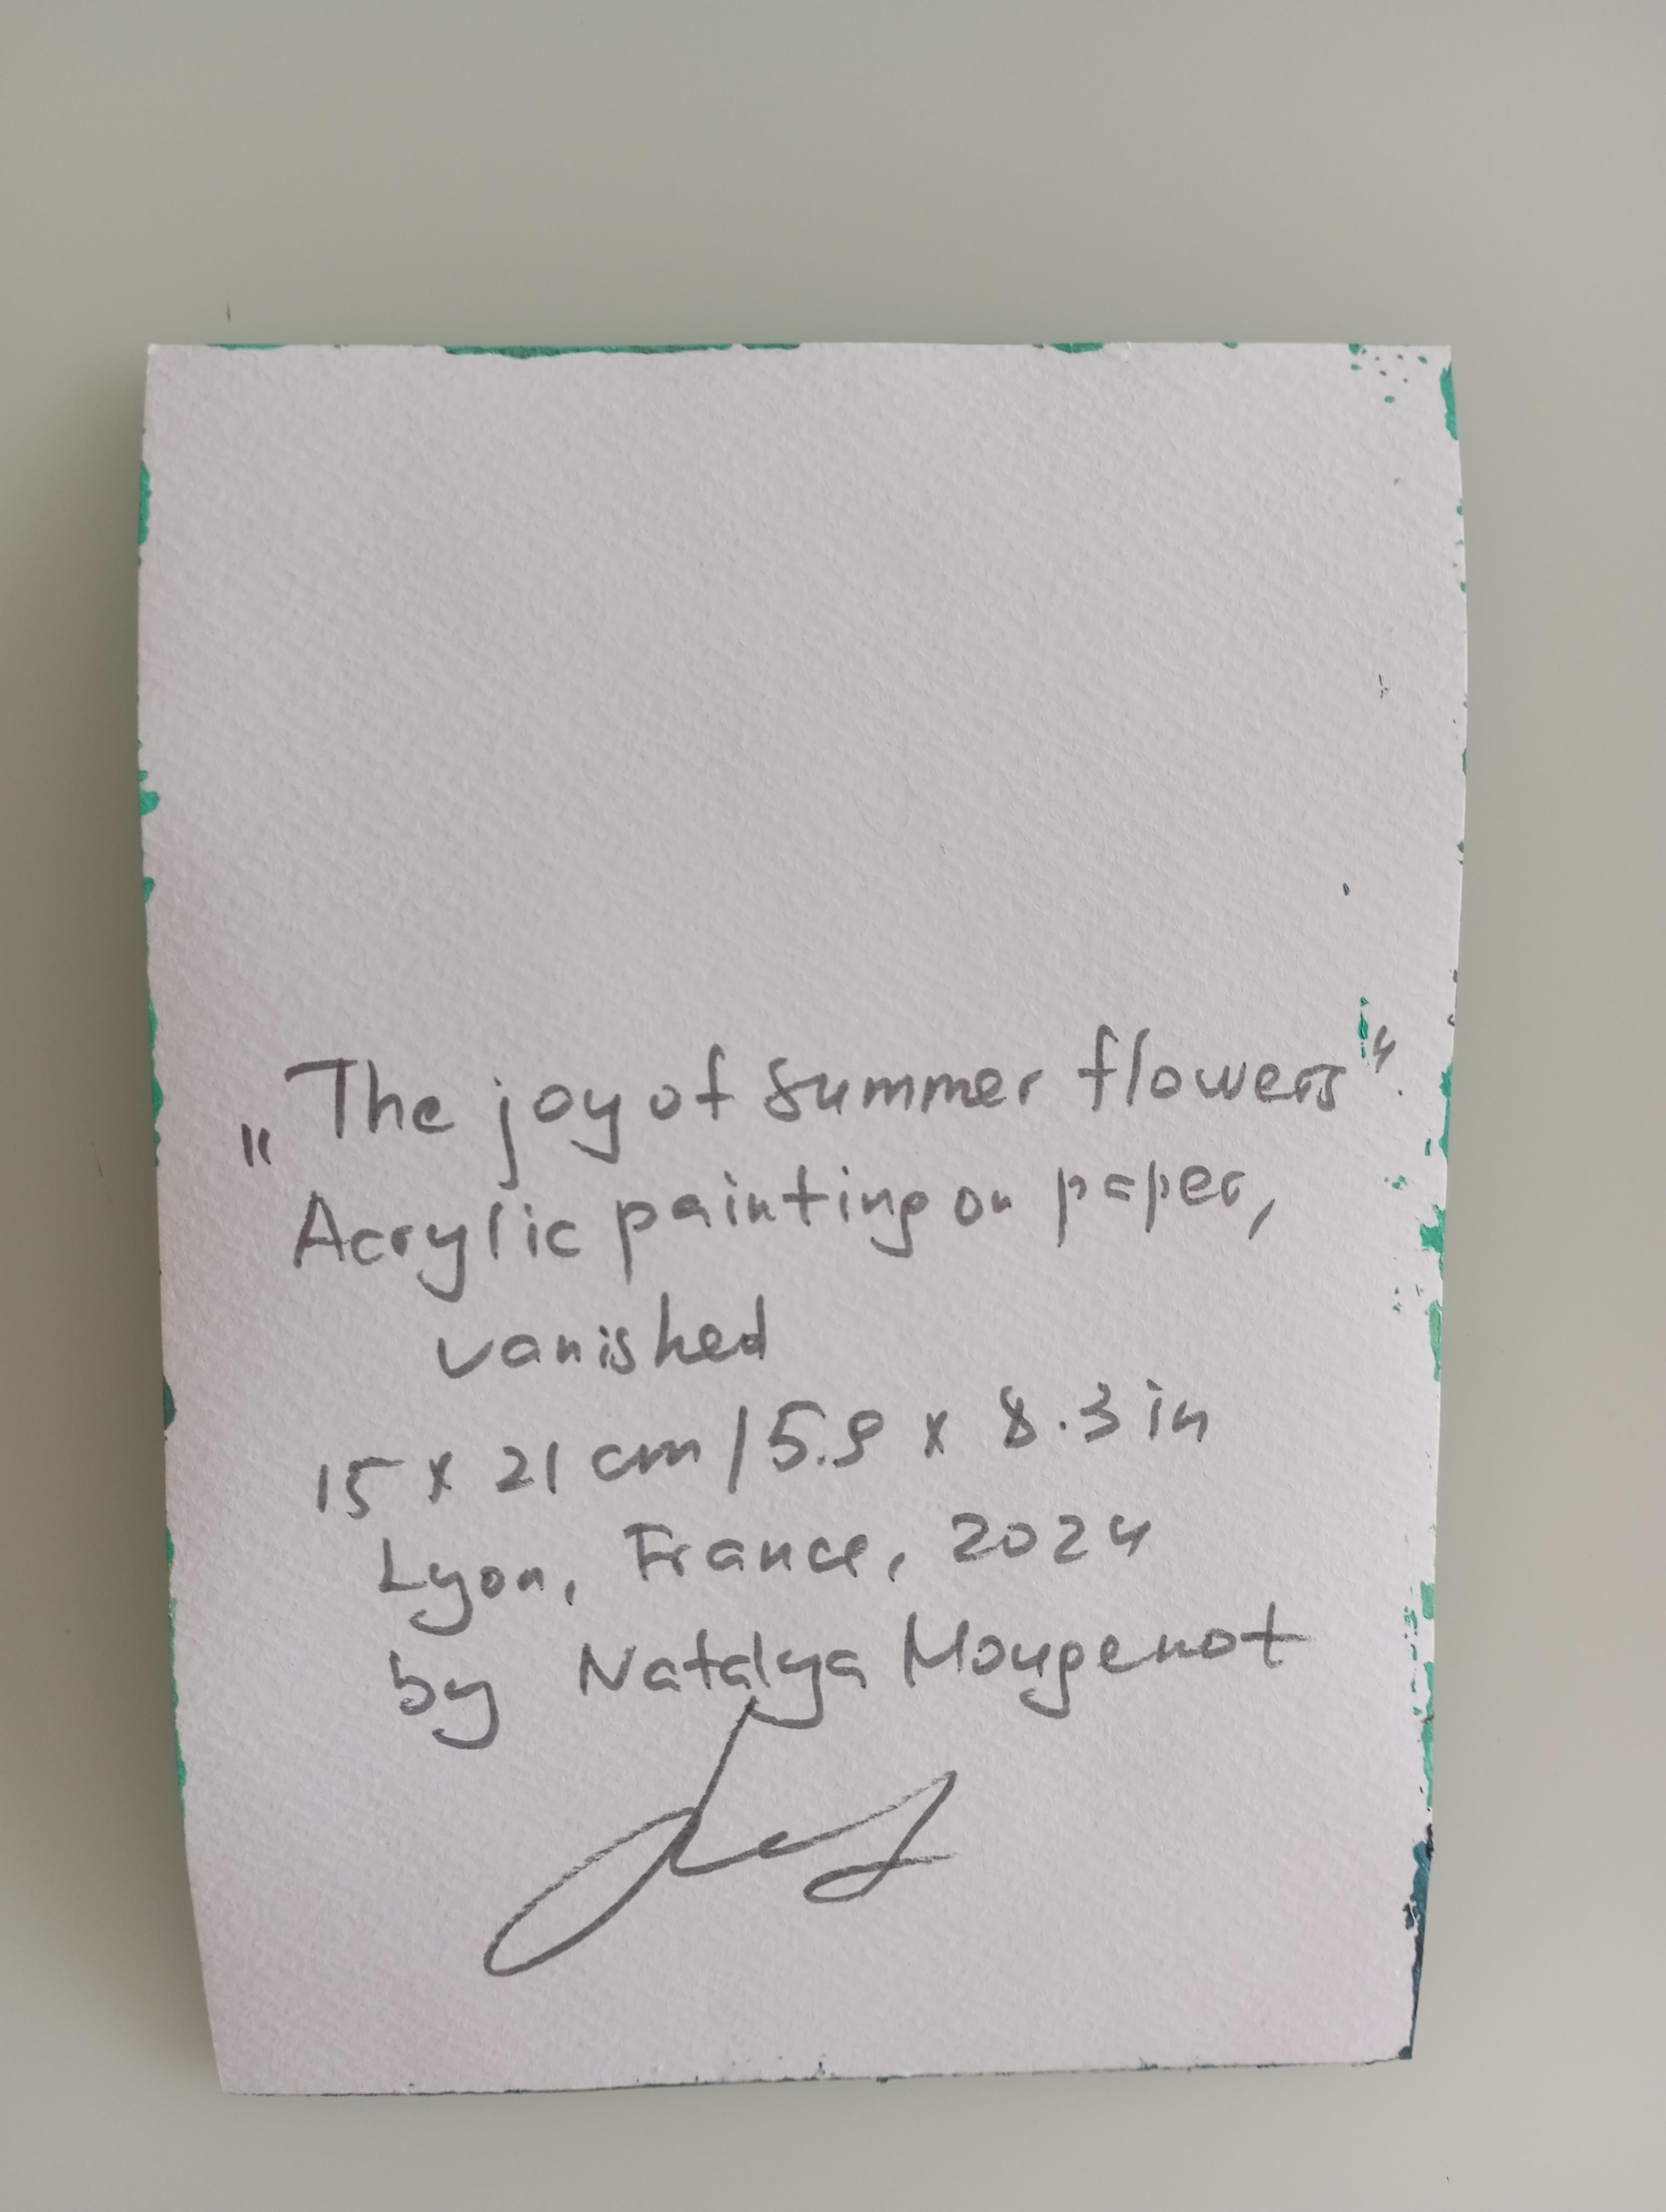 „The joy of summer flowers“
Acrylic painting on paper,
vanished
15 x 21 cm / 5.9 x 8.3 in
Lyon, France, 2024
by Natalya Mougenot